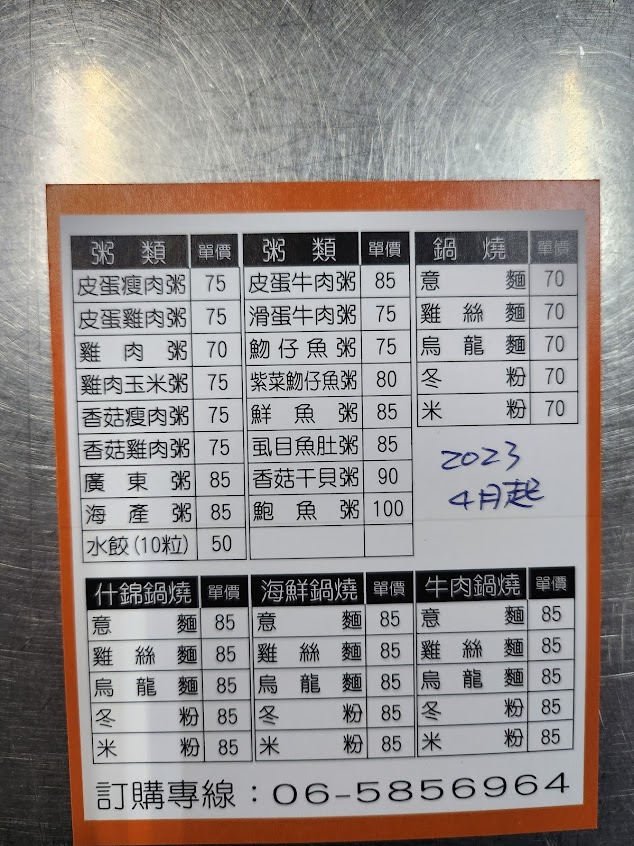 粥類 單價 粥類 單價 鍋燒 單價
皮蛋瘦肉粥 75 皮蛋牛肉粥 85 意麵 70
皮蛋雞肉粥 75 滑蛋牛肉粥 75 雞絲麵 70
雞肉粥 70 魩仔魚粥 75 烏龍麵 70
雞肉玉米粥 75 紫菜魩仔魚粥 80 冬粉 70
香菇瘦肉粥 75 鮮魚粥 85 米粉 70
香菇雞肉粥 75 虱目魚肚粥 85
廣東粥 85 香菇干貝粥 90
海產粥 85 鮑魚粥 100
水餃(10粒) 50
2023
4月起
什錦鍋燒 單價 海鮮鍋燒 單價 牛肉鍋燒 單價
意麵 85 意麵 85 意麵 85
雞絲麵 85 雞絲麵 85 雞絲麵 85
烏龍麵 85 烏龍麵 85 烏龍麵 85
冬粉 85 冬粉 85 冬粉 85
米粉 85 米粉 85 米粉 85
訂購專線：06-5856964